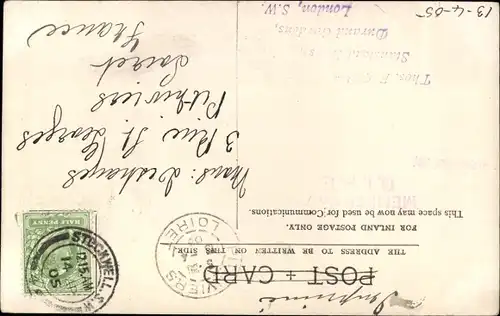 Imprimé
POST + CARD
THE ADDRESS TO BE WRITTEN ON THIS SIDE.
FOR INLAND POSTAGE ONLY.
This space may now be used for Communications.
Mons: Deshayes
3 Rue St. Georges
Pithiviers
Loiret
France
HALF PENNY
STOCKWELL. S.W
10.15AM
14
05
VIERS
LOIRET
Thos. F
Durand Gardens,
London, S.W.
13-4-05